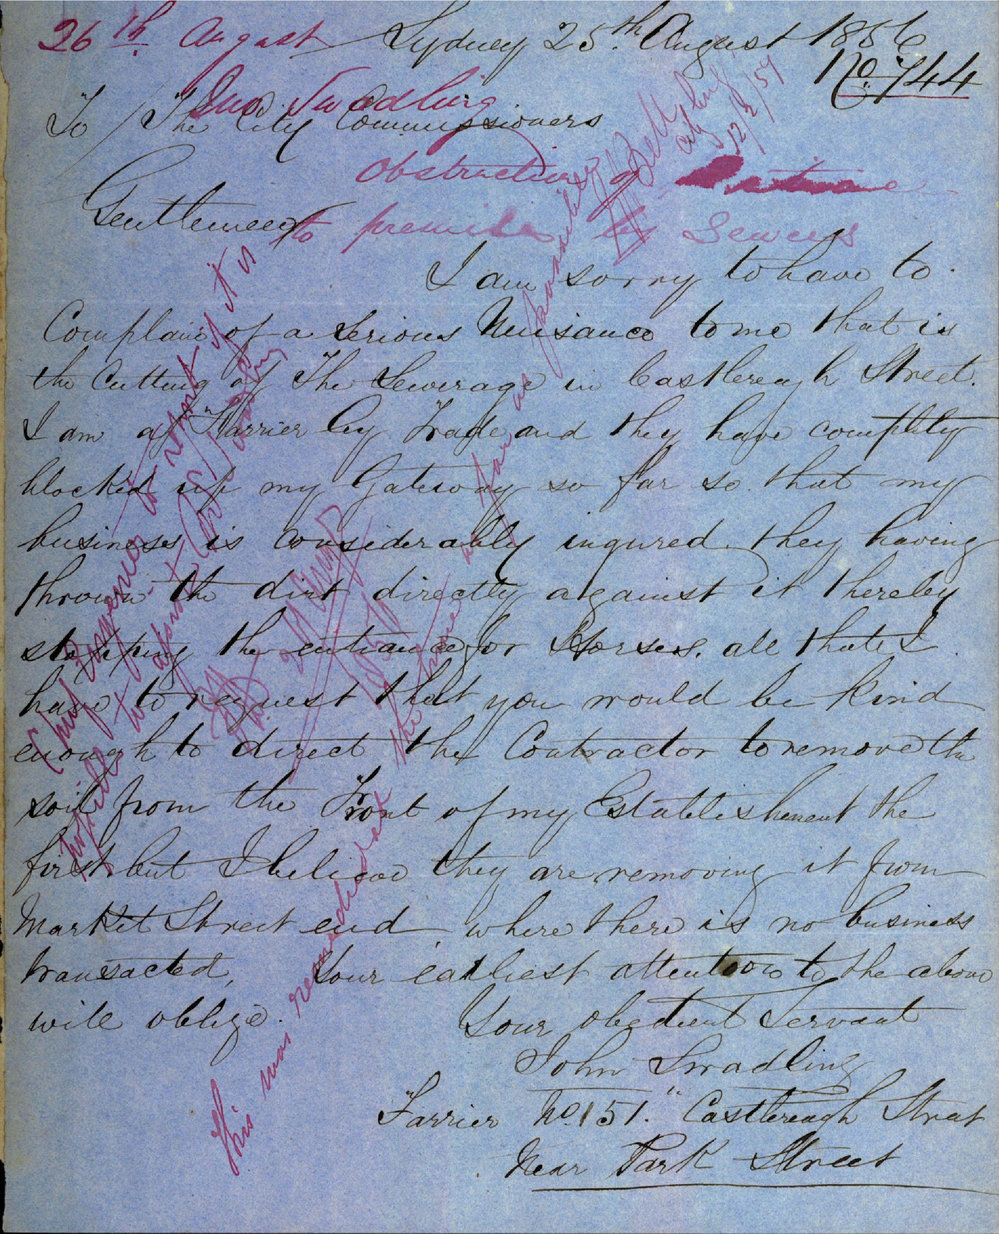 26th August Sydney 25th August 1856
No. 744
Jno Swadling
To / The City Commissioners
Obstruction of Entrance
Gentlemen
to premises by Sewers
I am sorry to have to
Complain of a Serious Nuisance to me that is
the Cutting of The Sewerage in Castlereagh Street.
I am a Farrier by Trade and they have complitly
blocked up my Gateway so far so that my
business is Considerably ingured. they having
thrown the dirt directly against it thereby
stopping the entrance for Horses. all that I
have to request that you would be kind
enough to direct the Contractor to remove the
soil from the Front of my Establishment the
first but I beligve they are removing it from
Market Street end where there is no business
transacted, Your earliest attention to the above
will oblige.
Your obedient Servant
John Swadling
Farrier No. 151. Castlereagh Street
Near Park Street
Chief Engineer to report if it is
This was remedied at the time as far as possible
W Bell
City Engr
12/2/57